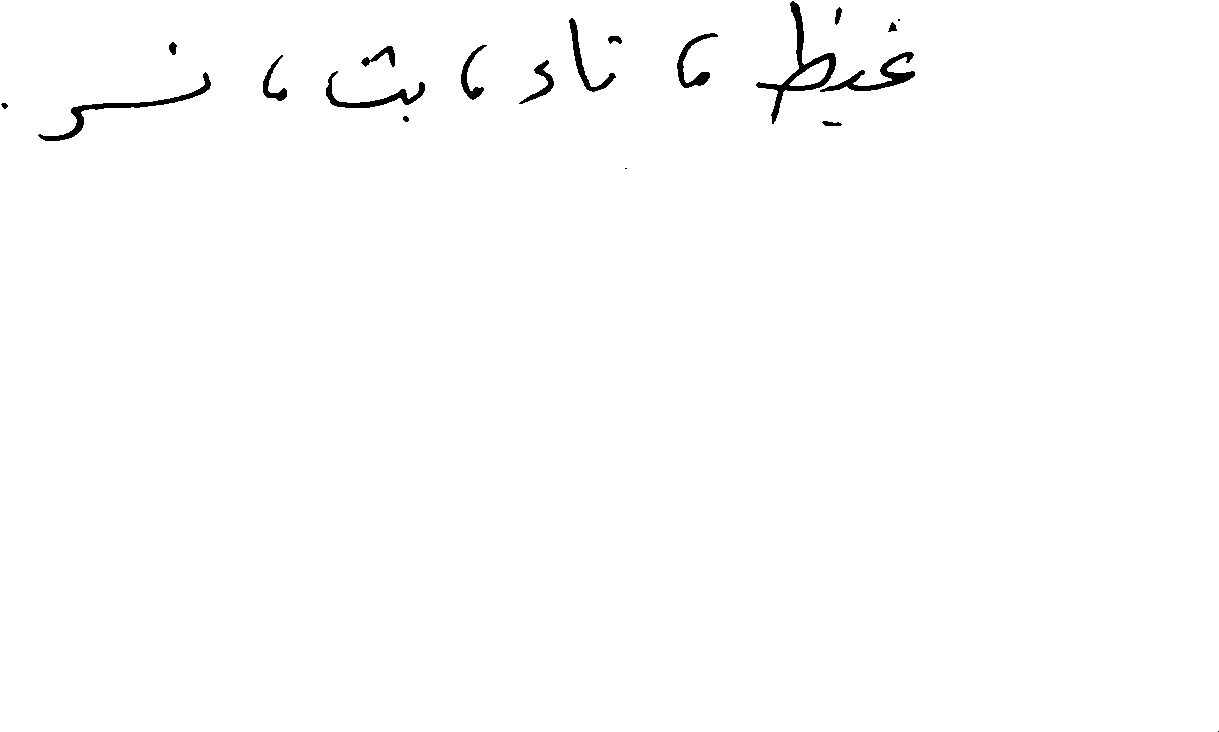 غيظ ، تاء ، بث ، نسر .